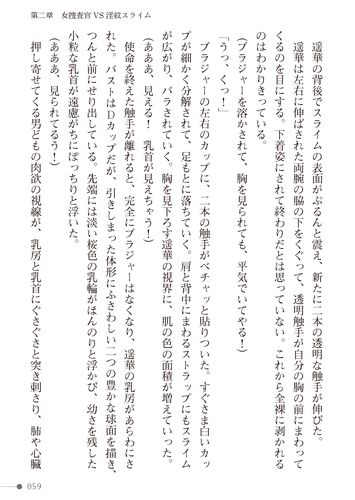 第二章　女捜査官VS淫紋スライム
遥華の背後でスライムの表面がぶるんと震え、新たに二本の透明な触手が伸びた。
遥華は左右に伸ばされた両腕の脇の下をくぐって、透明触手が自分の胸の前にまわって
くるのを目にする。下着姿にされて終わりだとは思っていない。これから全裸に剥かれる
のはわかりきっている。
(ブラジャーを溶かされて、胸を見られても、平気でいてやる!)
「うっ、くっ!」
ブラジャーの左右のカップに、二本の触手がベチャッと貼りついた。すぐさま白いカッ
プが細かく分解されて、足もとに落ちていく。肩と背中にまわるストラップにもスライム
が広がり、バラされていく。胸を見下ろす遥華の視界に、肌の色の面積が増えていった。
(あああ、見える!　乳首が見えちゃう!)
使命を終えた触手が離れると、完全にブラジャーはなくなり、遥華の乳房があらわにさ
れた。バストはDカップだが、引きしまった体形にふさわしい二つの豊かな球面を描き、
つんと前にせり出している。先端には淡い桜色の乳輪がほんのりと浮かび、幼さを残した
小粒な乳首が遠慮がちにぽっちりと浮いた。
(あああ、見られてるう!)
押し寄せてくる男どもの肉欲の視線が、乳房と乳首にぐさぐさと突き刺さり、肺や心臓
059